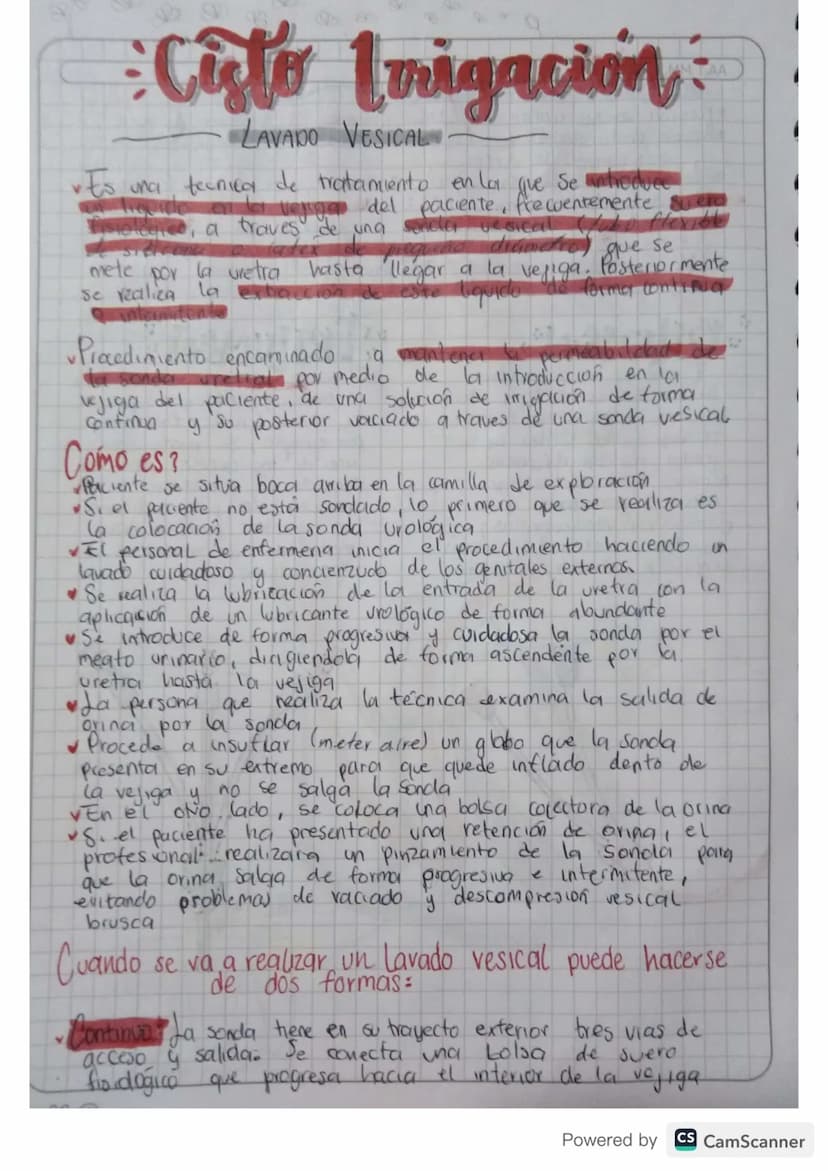 Cisto Irrigación
LAVADO VESICAL
Es una tecnica de tratamiento en la que se introduce
un liquido en la vejiga del paciente, frecuentemente suero
fisiológico, a traves de una sonda vesical (tubo flexible
de silicona o latex de pequeño diámetro) que se
mete por la uretra hasta llegar a la vejiga. Posteriormente
se realiza la extraccion de este liquido de forma continua
o intermitente
Procedimiento encaminado a mantener la permeabilidad de
la sonda uretral por medio de la introduccion en la
vejiga del paciente, de una solucion de irrigación de forma
continua y su posterior vaciado a traves de una sonda vesical
Como es?
Paciente se situa boca arriba en la camilla de exploración
Si el paciente no está sondado, lo primero que se realiza es
la colocación de la sonda urologica
El personal de enfermeria inicia el procedimiento haciendo un
lavado cuidadoso y concienzudo de los genitales externos.
Se realiza la lubricación de la entrada de la uretra con la
aplicación de un lubricante urológico de forma abundante
Se introduce de forma progresiva y cuidadosa la sonda por el
meato urinario, dirigiendola de forma ascendente por la
uretra hasta la vejiga
La persona que realiza la técnica examina la salida de
orina por la sonda
Procede a insuflar (meter aire) un globo que la sonda
presenta en su extremo para que quede inflado dento de
la vejiga y no se salga la sonda
En el otro lado, se coloca una bolsa colectora de la orina
Si el paciente ha presentado una retención de orina, el
profesional realizara un pinzamiento de la sonda para
que la orina salga de forma progresiva e intermitente,
evitando problemas de vaciado y descompresion vesical
brusca
Cuando se va a realizar un lavado vesical puede hacerse
de dos formas:
Continuo: La sonda tiene en su trayecto exterior tres vias de
acceso y salida. Se conecta una bolsa de suero
fisiológico que progresa hacia el interior de la vejiga
Powered by CS CamScanner